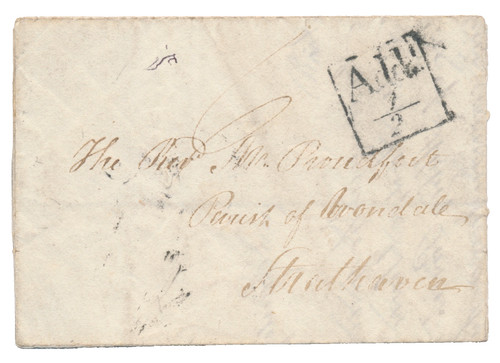 Add
1/2
The Revd Mr Proudfoot
Parish of Avondale
Strathaven